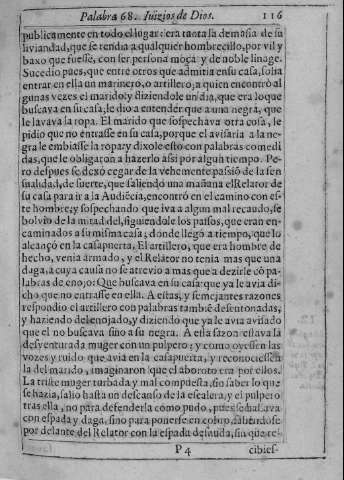 Palabra 68. Iuizios de Dios. 116
publicamente en todo el lugar: era tanta la demasia de su
liviandad, que se rendia a qualquier hombrecillo, por vil y
baxo que fuesse, con ser persona moça y de noble linage.
Sucedio pues, que entre otros que admitia en su casa, solia
entrar en ella un marinero, o artillero; a quien encontrò al
gunas vezes el marido: y diziendole un dia, que era lo que
buscava en su casa; le dio a entender que a una negra, que
le lavava la ropa. El marido que sospechava otra cosa, le
pidio que no entrasse en su casa, porque el avisaria a la ne-
gra le embiasse la ropa: y dixole esto con palabras comedi
das, que le obligaron a hazerlo assi por algun tiempo. Pe-
ro despues se dexò cegar de la vehemente passiõ de la sen
sualidad, de suerte, que saliendo una mañana el Relator de
su casa para ir a la Audiẽcia, encontrò en el camino con es-
te hombre; y sospechando que iva a algun mal recaudo, se
bolvio de la mitad del, siguiendole los passos, que eran en-
caminados a su misma casa; donde llegò a tiempo, que lo
alcançò en la casapuerta. El artillero, que era hombre de
hecho, venia armado, y el Relàtor no tenia mas que una
daga, a cuya causa no se atrevio a mas que a dezirle cõ pa-
labras de enojo: Que buscava en su casa que ya le avia di-
cho que no entrasse en ella. A estas, y semejantes razones
respondio el artillero con palabras tambiẽ desentonadas,
y haziendo del enojado, y diziendo que ya le avia avisado
que el no buscava sino a su negra. A esta sazon estava la
desventurada muger con un pulpero: y como oyessen las
vozes y ruido que avia en la casapuerta, y reconociessen
la del marido, imaginaron que el alboroto era por ellos.
La triste muger turbada y mal compuesta, sin saber lo que
se hazia, salio hasta un descanso de la escalera, y el pulpero
tras ella, no para defenderla como pudo, pues se hallava
con espada y daga, sino para ponerse en cobro, saliendose
por delante del Relator con la espada desnuda, sin que re-
P 4 cibies-